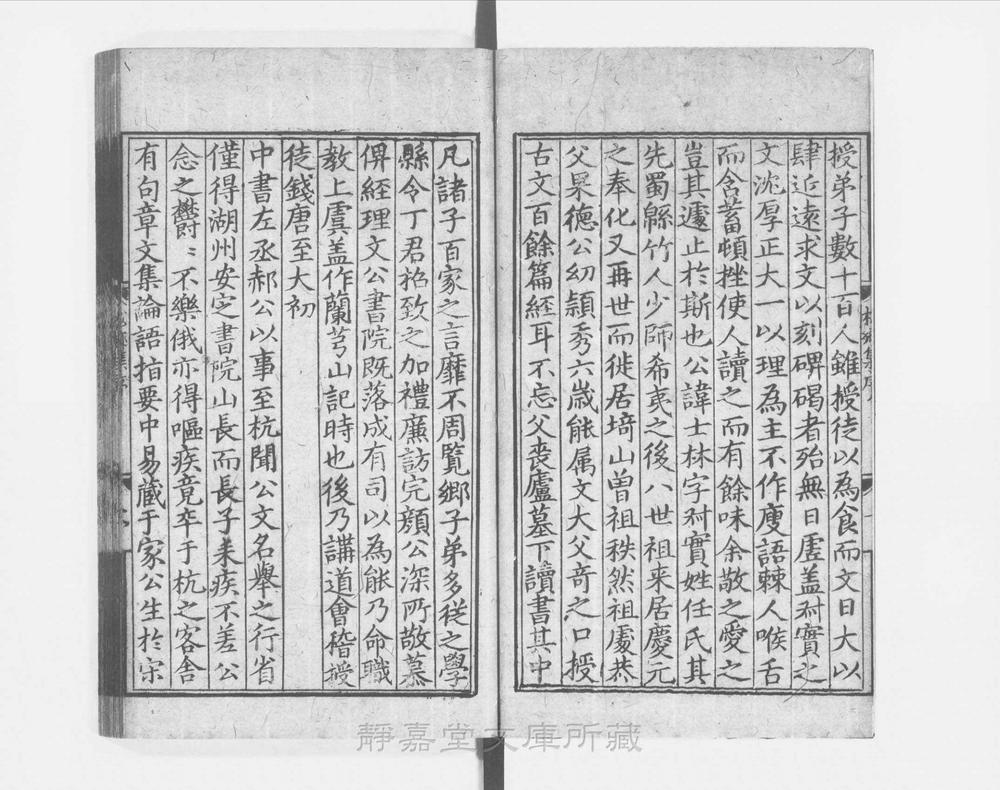 授弟子數十百人雖授徒以為食而文日大以
肆近遠求文以刻碑碣者殆無日虛盖叔實之
文沈厚正大一以理為主不作廋語棘人喉舌
而含蓄頓挫使人讀之而有餘味余敬之愛之
豈其遽止於斯也公諱士林字叔實姓任氏其
先蜀緜竹人少師希夷之後八世祖来居慶元
之奉化又再世而徙居埼山曽祖秩然祖處恭
父果德公幼頴秀六歲能属文大父竒之口授
古文百餘篇經耳不忘父丧廬墓下讀書其中
凡諸子百家之言靡不周覽鄉子弟多從之學
縣令丁君招致之加禮廉訪完顔公深所敬慕
俾經理文公書院既落成有司以為能乃命職
教上虞盖作蘭芎山記時也後乃講道會稽授
徒錢唐至大初
中書左丞郝公以事至杭聞公文名舉之行省
僅得湖州安定書院山長而長子耒疾不差公
念之欝〻不樂俄亦得嘔疾竟卒于杭之客舍
有句章文集論語指要中易藏于家公生於宋
靜嘉堂文庫所藏